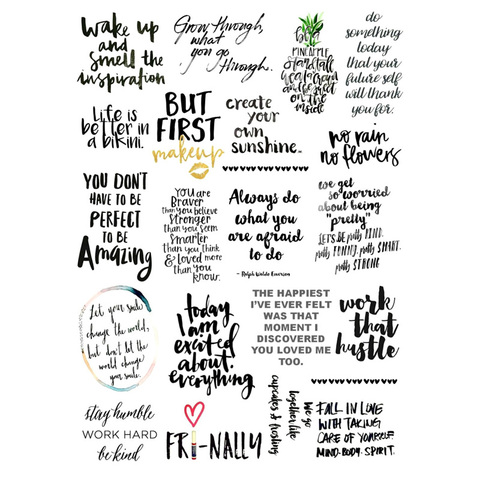 wake up
and
smell the
inspiration
Grow through,
what
you go
through.
be a
PINEAPPLE
stand tall
wear a crown
and be sweet
on the
inside
do
something
today
that your
future self
will thank
you for.
Life is
better in
a bikini.
BUT
FIRST
makeup
create
your
own
sunshine...
no rain
no flowers
YOU DON'T
HAVE TO BE
PERFECT
TO BE
Amazing
YOU are
Braver
than you believe
Stronger
than you seem
Smarter
than you think
& Loved more
than you
know.
Always do
what you
are afraid
to do
- Ralph Waldo Emerson
we get
so worried
about being
"pretty"
LET'S BE pretty KIND.
pretty FUNNY. pretty SMART.
pretty STRONG
Let your smile
change the world,
but don't let the
world change
your smile.
today
I am
excited
about.
everything
THE HAPPIEST
I'VE EVER FELT
WAS THAT
MOMENT I
DISCOVERED
YOU LOVED ME
TOO.
work
that
hustle
stay humble
WORK HARD
be kind
FRI-NALLY
we go
together like
cupcakes & frosting
FALL IN LOVE
WITH TAKING
CARE OF YOURSELF
MIND. BODY. SPIRIT.